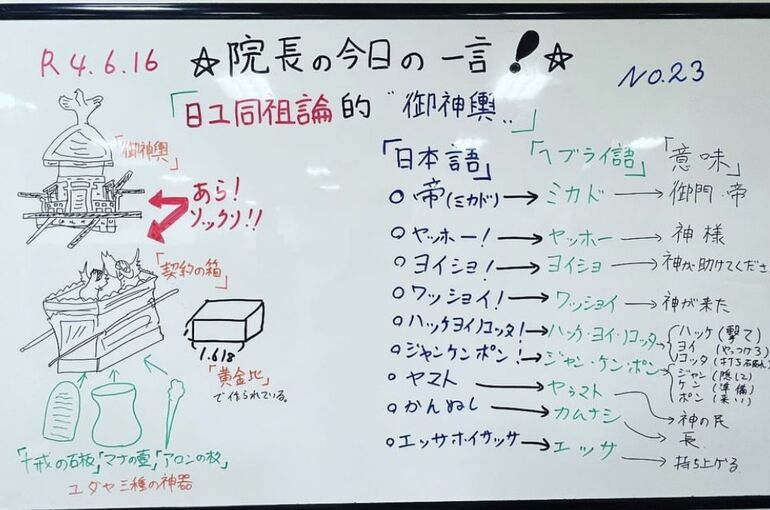 R4.6.16 ☆院長の今日の一言！☆ NO.23
「日ユ同祖論的 "御神輿"」
「御神輿」
あら！
ソックリ!!
「契約の箱」
1.618
「黄金比」
で作られている。
「十戒の石板」「マナの壺」「アロンの杖」
ユダヤ三種の神器
「日本語」 「ヘブライ語」 「意味」
○帝(ミカド) → ミカド → 御門・帝
○ヤッホー! → ヤッホー → 神様
○ヨイショ! → ヨイショ → 神が助けてくださ
○ワッショイ! → ワッショイ → 神が来た
○ハッケヨイノコッタ! → ハッケ・ヨイ・ノコッタ
ハッケ(撃て)
ヨイ(やっつけろ)
ノコッタ
○ジャンケンポン! → ジャン・ケン・ポン
ジャン(隠して)
ケン(準備)
ポン(来い)
○ヤマト → ヤゥマト → 神の民
○かんぬし → カムナシ → 長
○エッサホイサッサ → エッサ → 持ち上げる